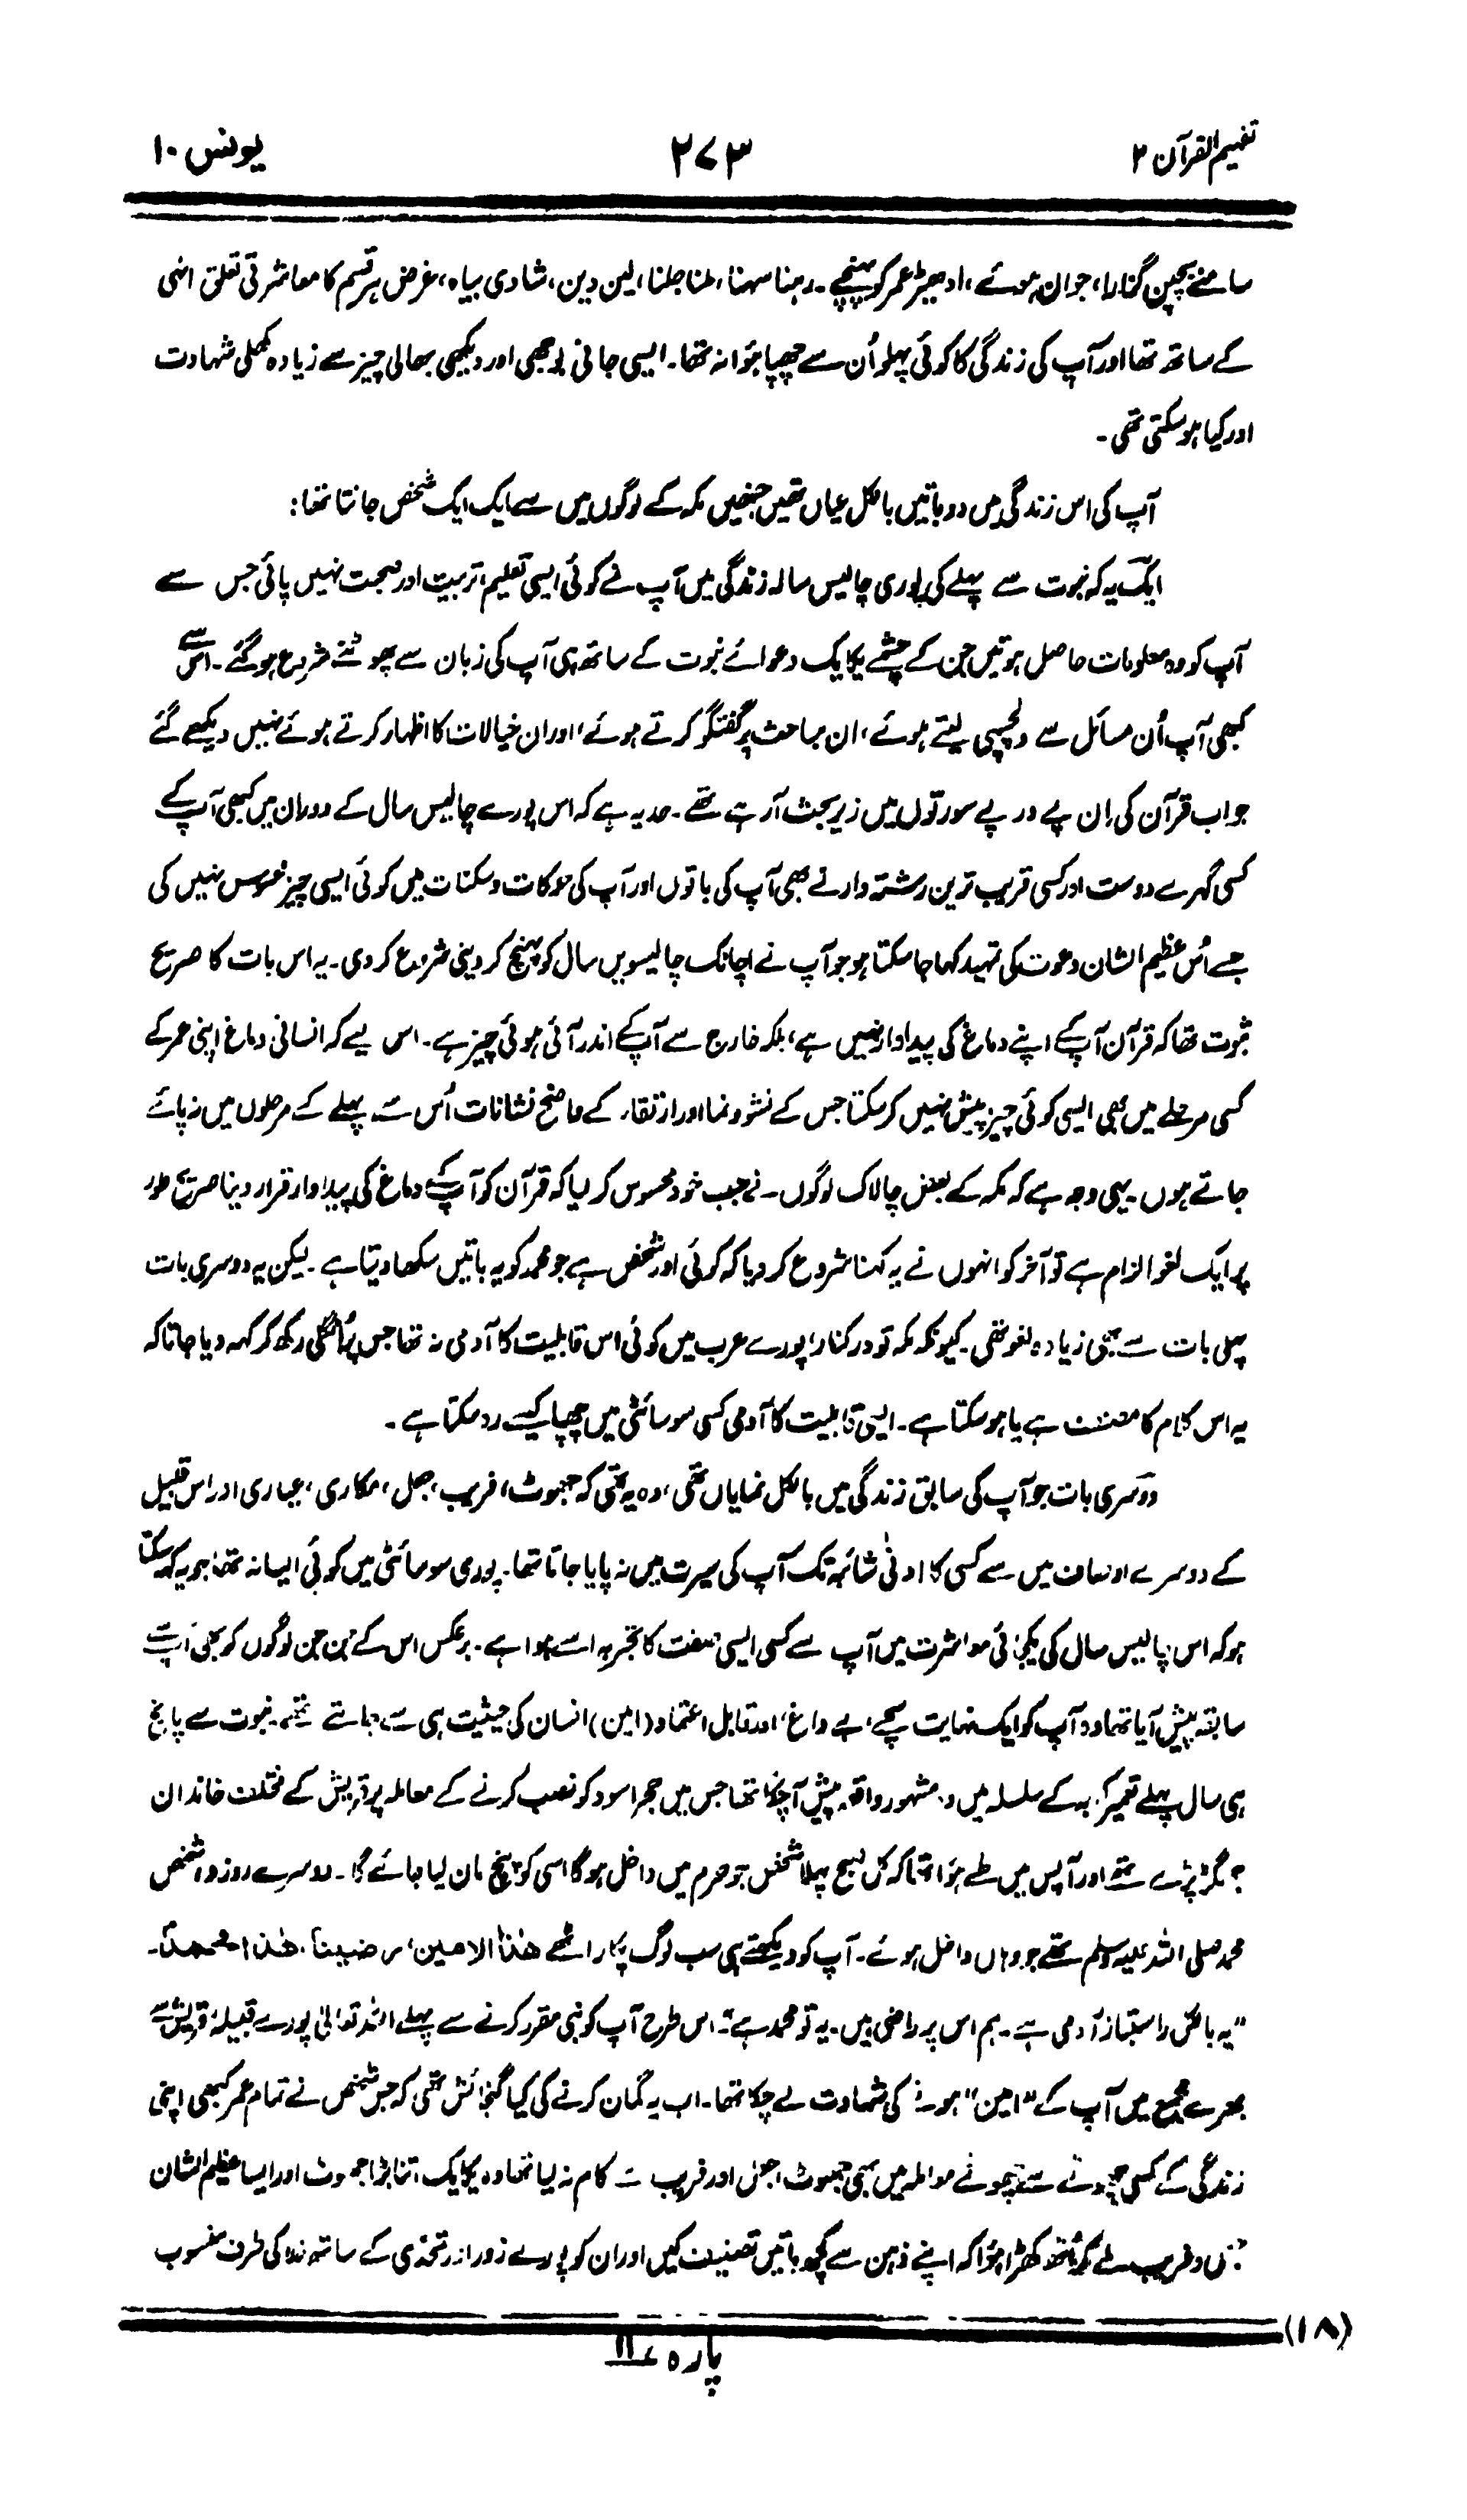 تفہیم القرآن ۲
۲۷۳
یونس ۱۰
سامنے بچپن گزارا، جوان ہوئے، ادھیڑ عمر کو پہنچے۔ رہنا سہنا، ملنا جلنا، لین دین، شادی بیاہ، غرض ہر قسم کا معاشرتی تعلق انہی
کے ساتھ تھا اور آپ کی زندگی کا کوئی پہلو اُن سے چھپا ہؤا نہ تھا۔ ایسی جانی بوجھی اور دیکھی بھالی چیز سے زیادہ کھلی شہادت
اور کیا ہو سکتی تھی۔
آپ کی اس زندگی میں دو باتیں بالکل عیاں تھیں جنھیں مکہ کے لوگوں میں سے ایک ایک شخص جانتا تھا:
ایک یہ کہ نبوت سے پہلے کی پوری چالیس سالہ زندگی میں آپ نے کوئی ایسی تعلیم، تربیت اور صحبت نہیں پائی جس سے
آپ کو وہ معلومات حاصل ہوتیں جن کے چشمے یکایک دعوائے نبوت کے ساتھ ہی آپ کی زبان سے پھوٹنے شروع ہو گئے۔ اس سے
کبھی آپ اُن مسائل سے دلچسپی لیتے ہوئے، ان مباحث پر گفتگو کرتے ہوئے، اور ان خیالات کا اظہار کرتے ہوئے نہیں دیکھے گئے
جو اب قرآن کی اِن پے در پے سورتوں میں زیر بحث آ رہے تھے۔ حد یہ ہے کہ اس پورے چالیس سال کے دوران میں کبھی آپ کے
کسی گہرے دوست اور کسی قریب ترین رشتہ دار نے بھی آپ کی باتوں اور آپ کی حرکات و سکنات میں کوئی ایسی چیز محسوس نہیں کی
جسے اُس عظیم الشان دعوت کی تمہید کہا جا سکتا ہو جو آپ نے اچانک چالیسویں سال کو پہنچ کر دینی شروع کر دی۔ یہ اس بات کا صریح
ثبوت تھا کہ قرآن آپ کے اپنے دماغ کی پیداوار نہیں ہے، بلکہ خارج سے آپ کے اندر آئی ہوئی چیز ہے۔ اس لیے کہ انسانی دماغ اپنی عمر کے
کسی مرحلے میں بھی ایسی کوئی چیز پیش نہیں کر سکتا جس کے نشوونما اور ارتقاء کے واضح نشانات اُس سے پہلے کے مرحلوں میں نہ پائے
جاتے ہوں۔ یہی وجہ ہے کہ مکہ کے بعض چالاک لوگوں نے جب خود محسوس کر لیا کہ قرآن کو آپ کے دماغ کی پیداوار قرار دینا صریح طور
پر ایک لغو الزام ہے تو آخر کو انہوں نے یہ کہنا شروع کر دیا کہ کوئی اور شخص ہے جو محمد کو یہ باتیں سکھا دیتا ہے۔ لیکن یہ دوسری بات
پہلی بات سے بھی زیادہ لغو تھی۔ کیونکہ مکہ تو درکنار، پورے عرب میں کوئی اس قابلیت کا آدمی نہ تھا جس پر اُنگلی رکھ کر کہہ دیا جاتا کہ
یہ اس کلام کا مصنف ہے یا ہو سکتا ہے۔ ایسی قابلیت کا آدمی کسی سوسائٹی میں چھپا کیسے رہ سکتا ہے۔
دوسری بات جو آپ کی سابق زندگی میں بالکل نمایاں تھی، وہ یہ تھی کہ جھوٹ، فریب، جعل، مکاری، عیاری اور اس قبیل
کے دوسرے اوصاف میں سے کسی کا ادنیٰ شائبہ تک آپ کی سیرت میں نہ پایا جاتا تھا۔ پوری سوسائٹی میں کوئی ایسا نہ تھا جو یہ کہہ سکتا
ہو کہ اس چالیس سال کی یکجائی معاشرت میں آپ سے کسی ایسی صفت کا تجربہ اسے ہوا ہے۔ برعکس اس کے جن جن لوگوں کو بھی آپ سے
سابقہ پیش آیا تھا وہ آپ کو ایک نہایت سچے، بے داغ، اور قابل اعتماد (امین) انسان کی حیثیت ہی سے جانتے تھے۔ نبوت سے پانچ
ہی سال پہلے تعمیر کعبہ کے سلسلہ میں وہ مشہور واقعہ پیش آچکا تھا جس میں حجر اسود کو نصب کرنے کے معاملہ پر قریش کے مختلف خاندان
جھگڑ پڑے تھے اور آپس میں طے ہؤا تھا کہ کل صبح پہلا شخص جو حرم میں داخل ہوگا اسی کو پنچ مان لیا جائے گا۔ دوسرے روز وہ شخص
محمد صلی اللہ علیہ وسلم تھے جو وہاں داخل ہوئے۔ آپ کو دیکھتے ہی سب لوگ پکار اٹھے ھٰذا الامین، رضینا، ھٰذا محمدٌ۔
"یہ بالکل راستباز آدمی ہے۔ ہم اس پر راضی ہیں۔ یہ تو محمد ہے"۔ اس طرح آپ کو نبی مقرر کرنے سے پہلے اللہ تعالیٰ پورے قبیلۂ قریش سے
بھرے مجمع میں آپ کے "امین" ہونے کی شہادت لے چکا تھا۔ اب یہ گمان کرنے کی کیا گنجائش تھی کہ جس شخص نے تمام عمر کبھی اپنی
زندگی کے کسی چھوٹے سے چھوٹے معاملہ میں بھی جھوٹ، جعل اور فریب سے کام نہ لیا تھا وہ یکایک اتنا بڑا جھوٹ اور ایسا عظیم الشان
جعل و فریب لے کر اُٹھ کھڑا ہؤا کہ اپنے ذہن سے کچھ باتیں تصنیف کیں اور ان کو پورے زور اور تحدّی کے ساتھ خدا کی طرف منسوب
(۱۸)
پارہ ۱۱